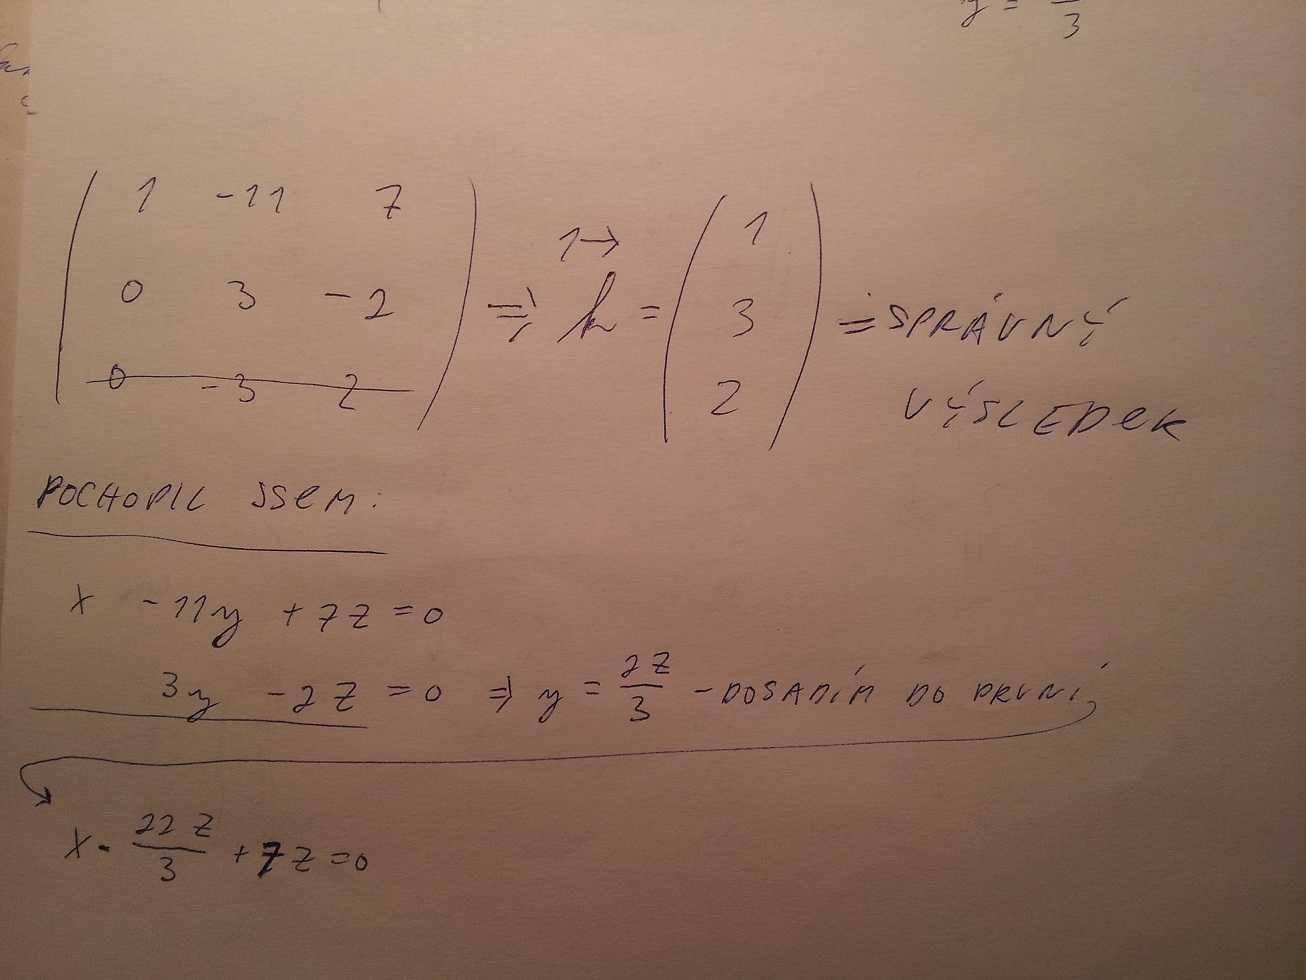 y = 3
1 -11 7
0 3 -2
0 -3 2
=> 1→ h = ( 1 3 2 ) = SPRÁVNÝ
VÝSLEDEK
POCHOPIL JSEM:
x - 11y + 7z = 0
3y - 2z = 0 => y = 2z/3 - DOSADÍM DO PRVNÍ
x - 22z/3 + 7z = 0